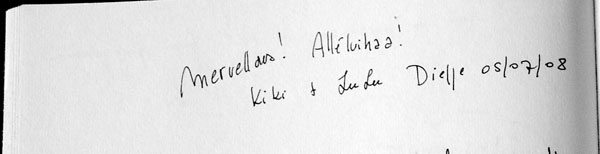 Mervellous! Alléluihaa!
Kiki & LuLu Dielle 05/07/08